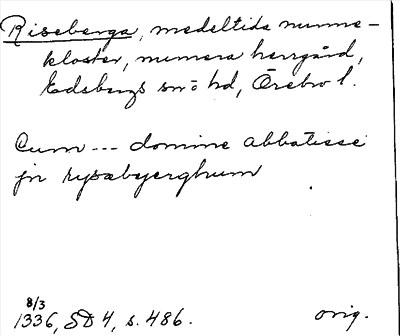 Riseberga, medeltida nunne-
kloster, numera herrgård,
Edsbergs sn o hd, Örebro l.
Cum --- domine abbatisse
jn rysæbyerghum
8/3
1336, SD 4, s. 486. orig.